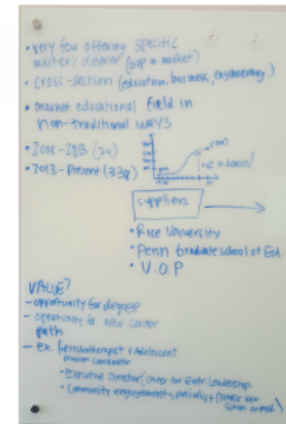 • very few offering specific
master's degree (gap in market)
• cross-section (education, business, engineering)
• market educational field in
non-traditional ways
• 2013-Present (338)
suppliers
• Rice University
• Penn Graduate School of Ed.
• U.O.P.
VALUE?
- opportunity for degree
- opportunity for new career
path
- Ex. Psychotherapist & Adolescent
Program Coordinator
• Executive Director/Center for Entr. Leadership
• Community engagement specialist